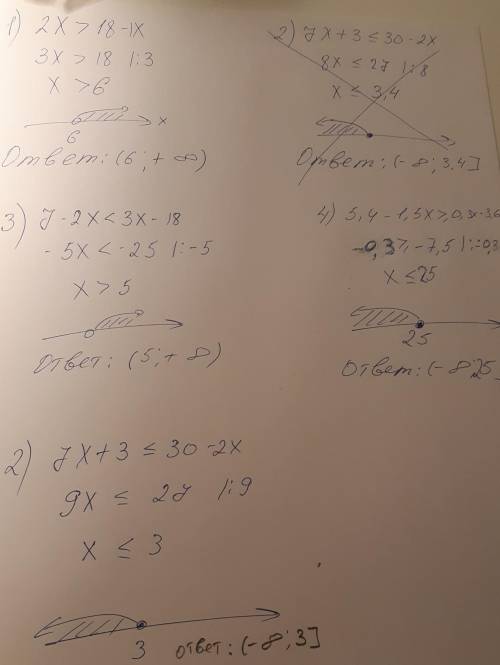 1) 2x > 18-1x
3x > 18 |:3
x > 6
6 x
Ответ: (6 ; + ∞)
2) 7x + 3 ≤ 30 - 2x
8x ≤ 27 |:8
x ≤ 3,4
Ответ: (- ∞ ; 3,4]
3) 7 - 2x < 3x - 18
- 5x < -25 |:-5
x > 5
Ответ: (5 ; + ∞)
4) 5,4 - 1,5x ≥ 0,3x - 3,6
≥ -7,5 |:-0,3
x ≤ 25
25
Ответ: (- ∞ ; 25
2) 7x + 3 ≤ 30 - 2x
9x ≤ 27 |:9
x ≤ 3
3 ответ: (- ∞ ; 3]